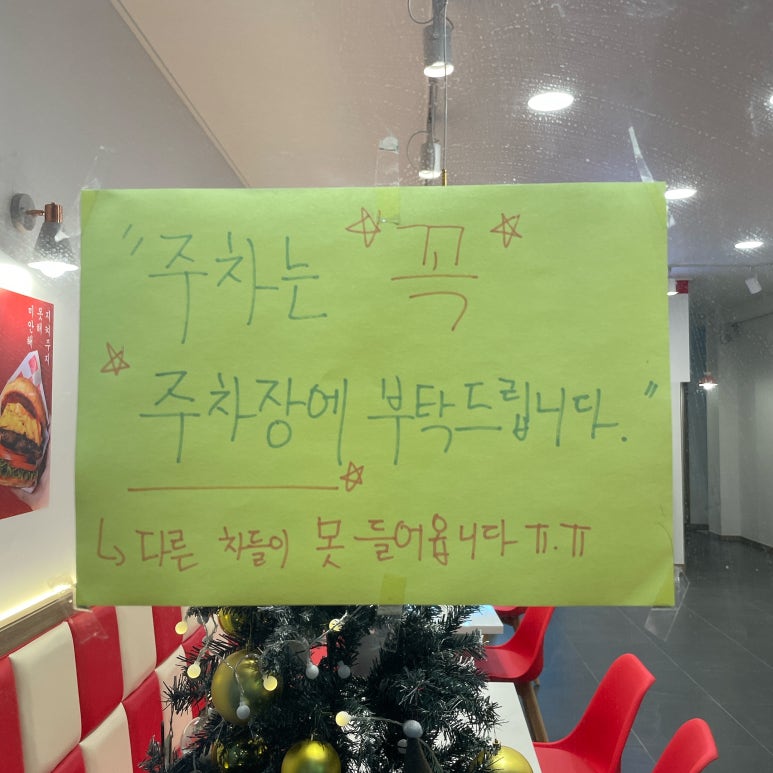 "주차는 ☆꼭☆
☆주차장에 부탁드립니다."
☆
↳ 다른 차들이 못 들어옵니다 ㅠ.ㅠ
지켜주지
못해
미안해